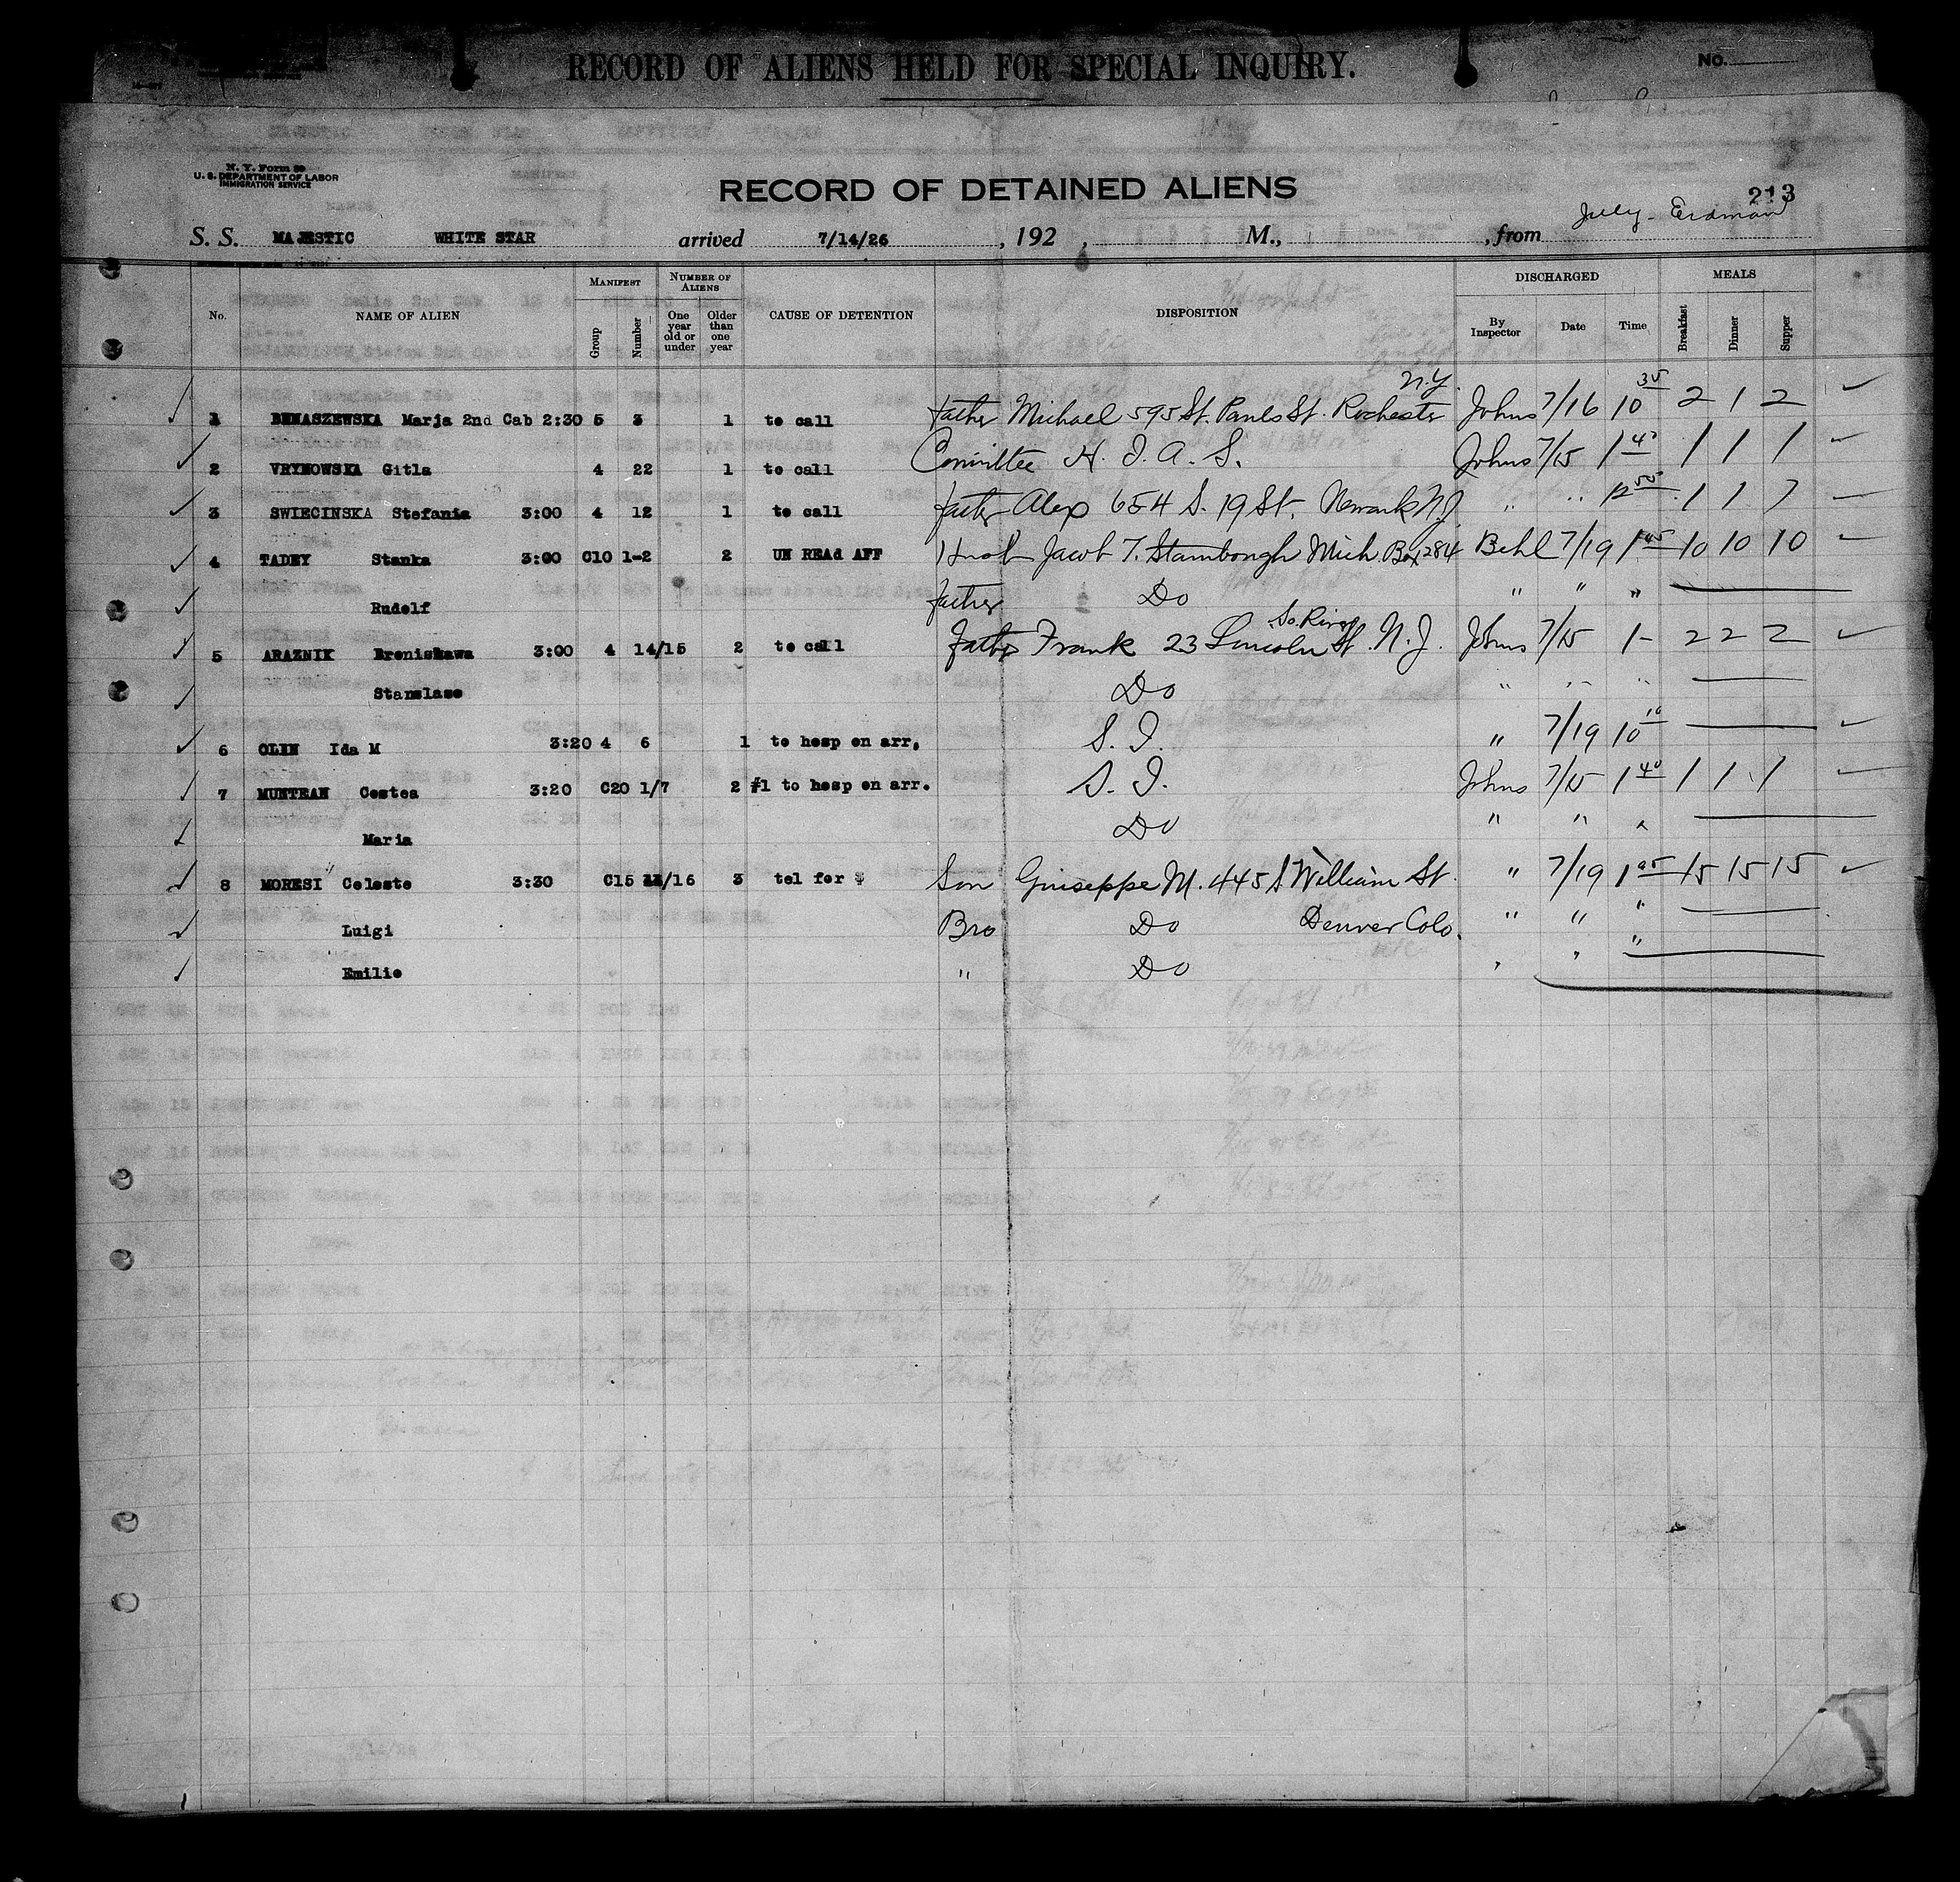 RECORD OF ALIENS HELD FOR SPECIAL INQUIRY.
No.
N. Y. Form 89
U. S. DEPARTMENT OF LABOR
IMMIGRATION SERVICE
RECORD OF DETAINED ALIENS
213
July - Erdman
S. S. MAJESTIC WHITE STAR arrived 7/14/26 , 192 , M., , from
No. NAME OF ALIEN MANIFEST Group Number NUMBER OF ALIENS One year old or under Older than one year CAUSE OF DETENTION DISPOSITION DISCHARGED By Inspector Date Time MEALS Breakfast Dinner Supper
1 BEMASZEWSKA Marja 2nd Cab 2:30 5 3 1 to call Father Michael 595 St. Pauls St. Rochester N.Y. Johns 7/16 10 35 2 1 2
2 VRYNOWSKA Gitla 4 22 1 to call Committee H. I. A. S. Johns 7/15 1 1 1 1
3 SWIECINSKA Stefania 3:00 4 12 1 to call Father Alex 654 S. 19 St. Newark N.J. " " 12 50 1 1 1
4 TADEY Stanka 3:00 C10 1-2 2 UN READ AFF Husb Jacob T. Stambough Mich. Box 284 Behl 7/19 1 45 10 10 10
Rudolf Father Do " " "
5 ARAZNIK Broniskawa 3:00 4 14/15 2 to call Father Frank 23 Lincoln St. So. River N. J. Johns 7/15 1- 2 2 2
Stanslase Do " " "
6 OLIN Ida M 3:20 4 6 1 to hosp on arr. S. I. " 7/19 10 10
7 MUNTEAN Costea 3:20 C20 1/7 2 #1 to hosp on arr. S. I. Johns 7/15 1 40 1 1 1
Maria Do " " "
8 MORESI Celeste 3:30 C15 /16 3 tel for $ Son Giuseppe M. 445 S William St. " 7/19 1 15 15 15
Luigi Bro Do Denver Colo. " " "
Emilio " Do " " "